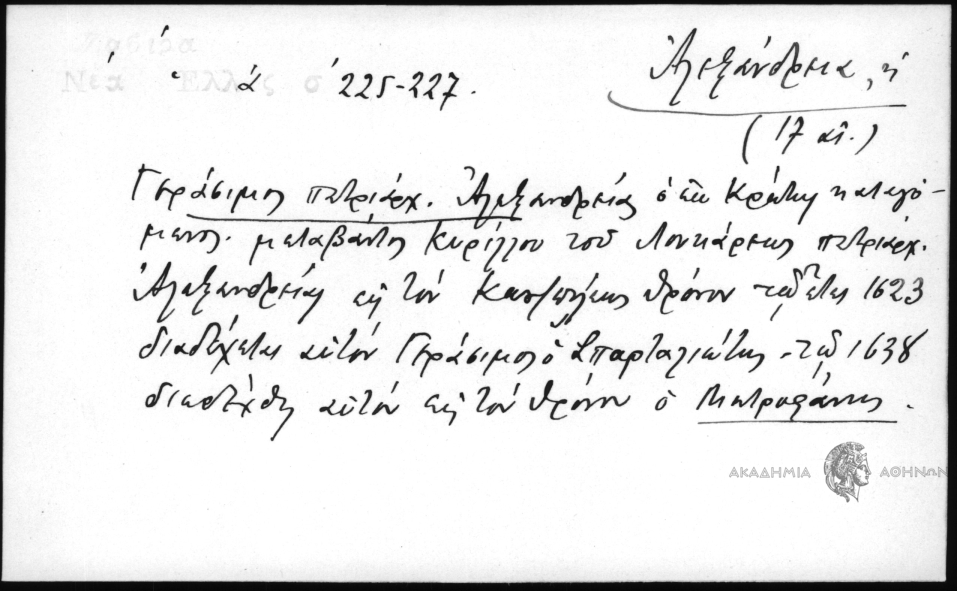 Νέα Ἑλλάς σ 225-227.
Ἀλεξάνδρεια, ἡ
(17 αἰ.)
Γεράσιμος πατριάρχ. Ἀλεξανδρείας ὁ ἐκ Κρήτης καταγό-
μενος. μεταβάντος Κυρίλλου τοῦ Λουκάρεως πατριάρχ.
Ἀλεξανδρείας εἰς τὸν Κωνσ/πόλεως θρόνον τῷ ἔτει 1623
διαδέχεται αὐτὸν Γεράσιμος ὁ Σπαρταλιώτης. τῷ 1638
διεδέχθη αὐτὸν εἰς τὸν θρόνον ὁ Μητροφάνης.
ΑΚΑΔΗΜΙΑ ΑΘΗΝΩΝ